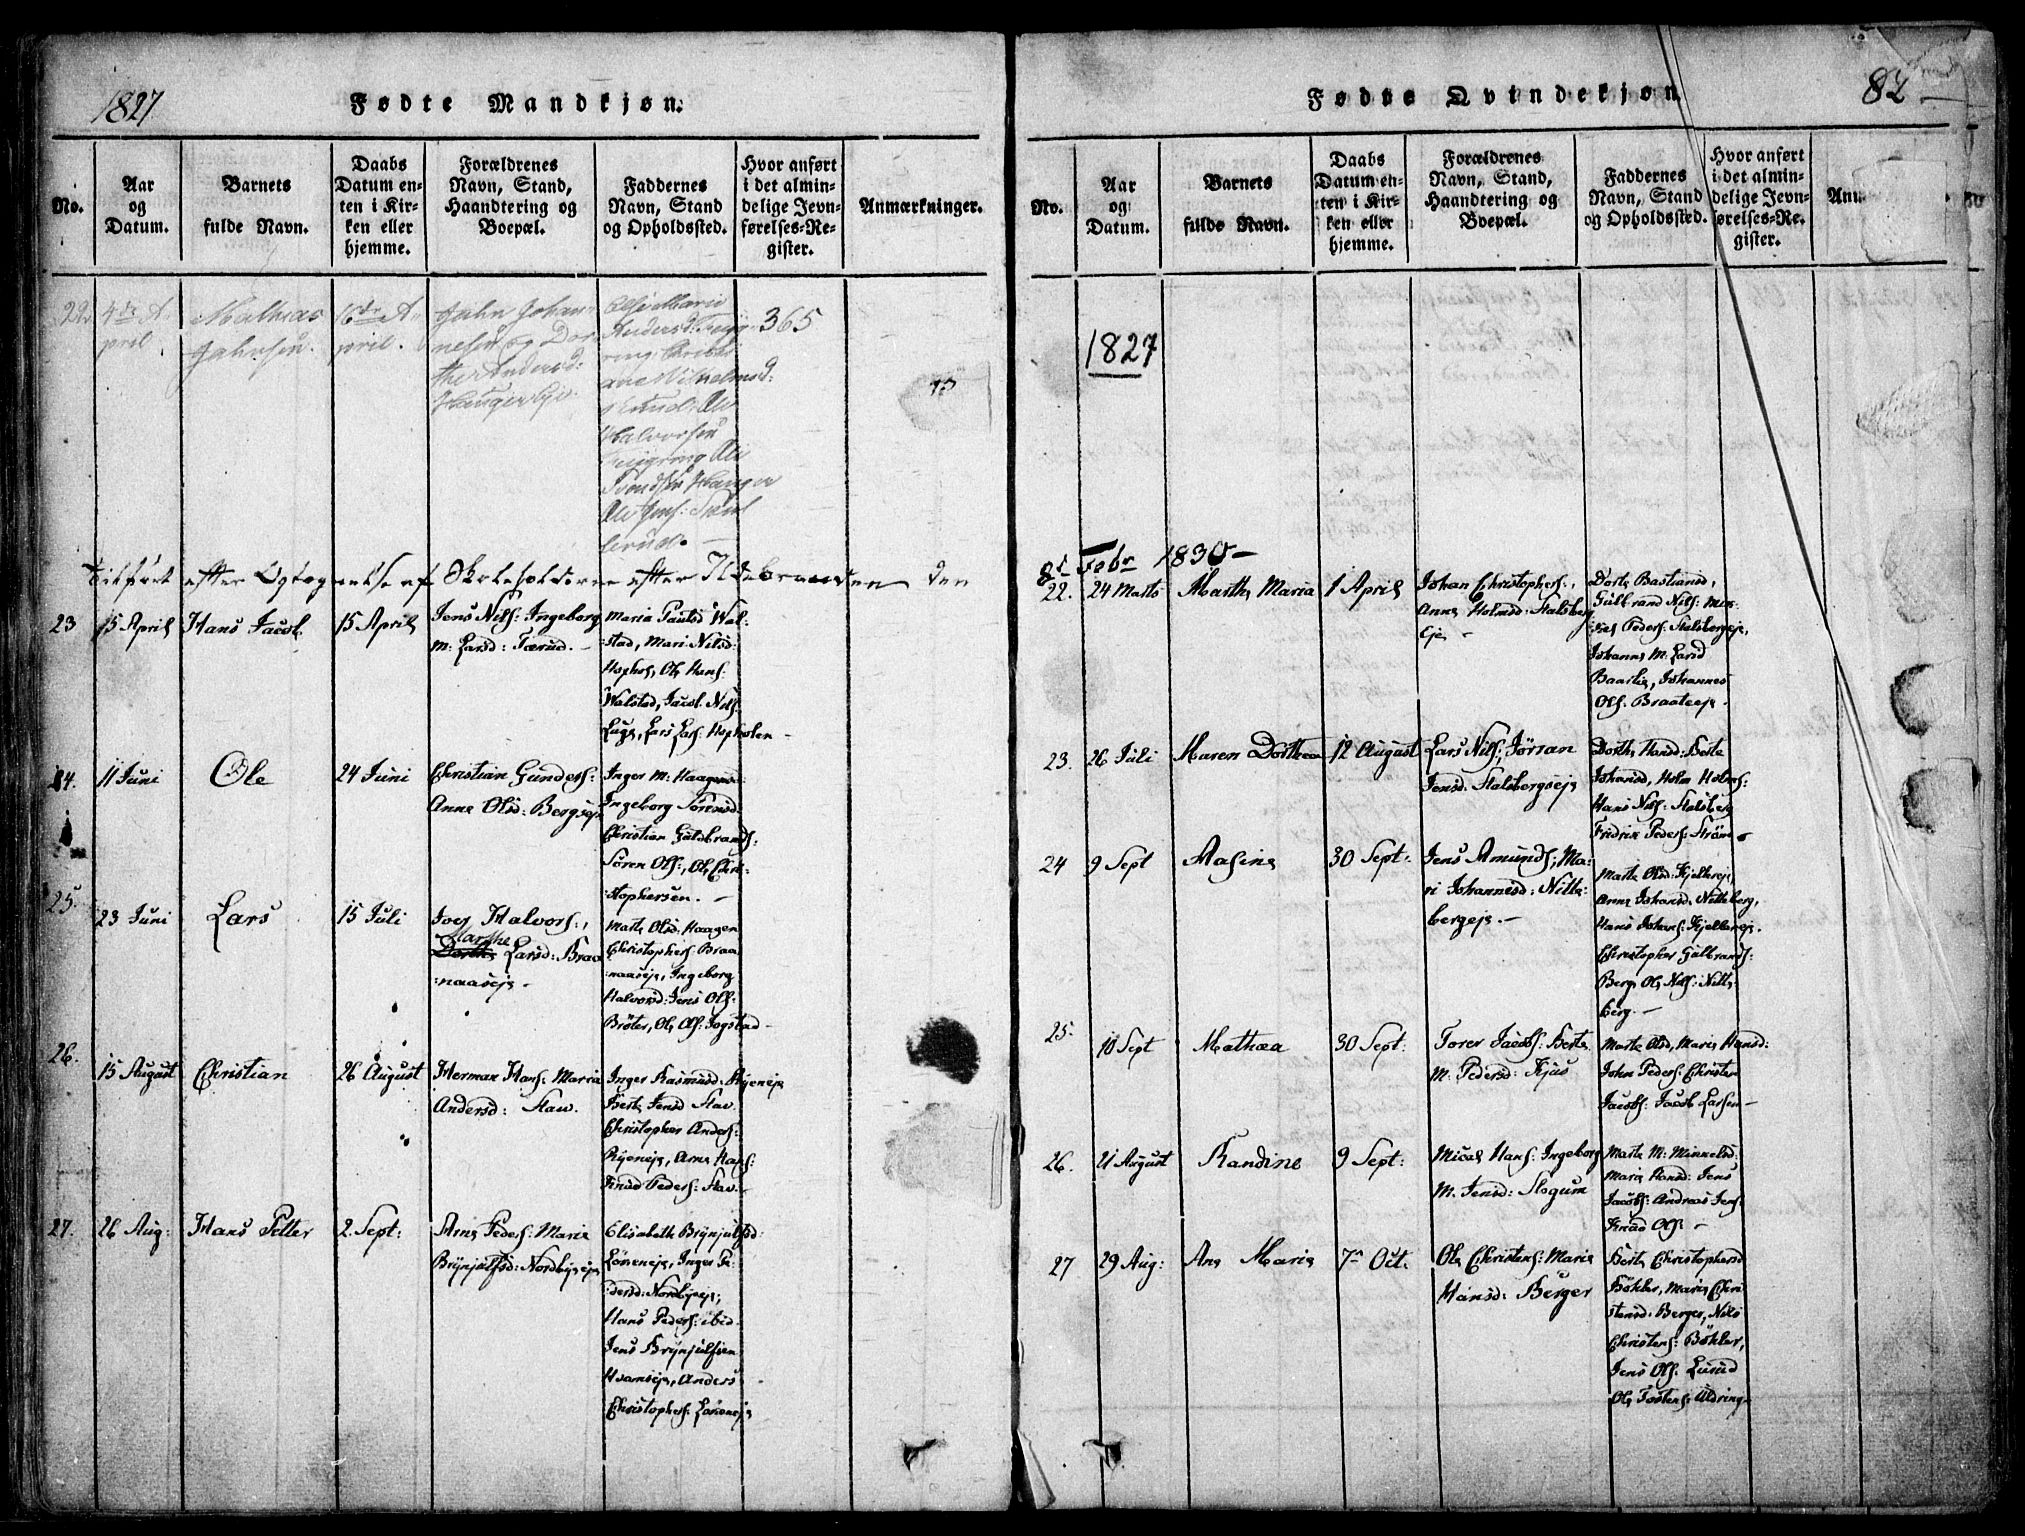 1827
Fødte Mandkjøn.
No.
Aar
og
Datum.
Barnets
fulde Navn.
Daabs
Datum en-
ten i Kir-
ken eller
hjemme.
Forældrenes
Navn, Stand,
Haandtering og
Boepæl.
Faddernes
Navn, Stand
og Opholdssted.
Hvor anført
i det almin-
delige Jevn-
førelses-Re-
gister.
Anmærkninger.
22
4de A-
pril
Mathias
Jahnsen.
16de A-
pril.
Jahn Johan-
nesen og Dor-
the Andersd:
Hauger Eje.
Marie
Andersd:
Wilhelmsd:
Ole
Halvorsen
Ole
Hauger
Ole Jens:
365
Tilført efter Optegnelse af Skoleholderne efter Ildebranden den
23
15 April
Hans Jacob
15 April
Jens Nils: Ingeborg
M: Larsd: Tærud. -
Maria Paulsd Wal-
stad, Mari Nilsd:
Hophol, Ole Hans:
Walstad, Jacob Nils:
Luge, Lars Lars: Hopholen -
24.
11 Juni
Ole
24 Juni
Christian Gunders:
Anne Olsd: Bergseje
Inger M: Haagens:
Ingeborg Sørensd:
Christian Gulbrands:
Søren Ols:, Ole Chri-
stophersen. -
25.
23 Juni
Lars
15 Juli
Joer Halvors:,
Marthe
Dorthe Larsd: Braa
:naaseje -
Marte Olsd: Haagen
Christophers: Braa
naaseje, Ingeborg
Halvorsd: Jens Ols:
Brøter, Ole Ols: Jogstad -
26.
15 August
Christian
26 August
Herman Hans: Maria
Andersd: Stav.
Inger Rasmusd: Ryeneje
Berte Jensd Stav.
Christopher Anders:
Ryeneje, Arne Hans:
Knud Peders: Stav. -
27.
26 Aug:
Hans Petter
2. Sept:
Arne Peders: Maria
Brynjulfsd: Nordbyeje
Elisabeth Brynjulfsd:
Løreneje, Inger Pe-
dersd: Nordbyeje;
Hans Peders: ibid.
Jens Brynjulfsen
Hvamseje, Anders
Christophers: Løreneje
Fødte Qvindekjøn
82
No.
Aar
og
Datum.
Barnets
fulde Navn.
Daabs
Datum en-
ten i Kir-
ken eller
hjemme.
Forældrenes
Navn, Stand,
Haandtering og
Boepæl.
Faddernes
Navn, Stand
og Opholdssted.
Hvor anført
i det almin-
delige Jevn-
førelses-Re-
gister.
Anm
1827
8d Febr 1830 -
22.
24 Marts
Marthe Maria
1 April
Johan Christophers:,
Anne Holmsd: Stalsberg
eje -
Dorte Bastiansd,
Gulbrand Nils:
Peders: Stalsbergeje,
Johanne M: Larsd
Baarlie, Johannes
Ols: Braateeje.
23.
26 Juli
Maren Dorthea
12 August
Lars Nils:, Jørran
Jensd: Stalsbergseje
Dorthe Hansd: Berte
Johansd, Holm Holms:
Hans Nils: Stalsberg
Fredrik Peders: Strøm -
24
9 Sept
Masine
30 Sept:
Jens Amunds:, Ma-
ri Johannesd: Nitte-
bergeje. -
Marte Olsd: Kjellereje
Anne Johansd: Nitteberg,
Hans Johans: Kjellereje.
Christopher Gulbrands:
Berg, Ole Nils: Nitte-
berg. -
25.
10 Sept
Mathæa
30 Sept:
Torer Jacobs: Berte
M: Pedersd: Kjus
Marte Olsd, Maria Hansd:
John Peders: Christen
Jacobs: Jacob Larsen -
26.
21 August
Randine
9 Sept:
Micel Hans: Ingeborg
M: Jensd: Slogum
Marte M: Minnelsd:
Maria Hansd: Jens
Jacobs: Andreas Jens:
Knud Ols: -
27
29 Aug:
Ane Maria
7de Oct.
Ole Christens: Maria
Hansd: Berger
Berte Christophersd
Bøhler, Maria Chri
stensd: Berger, Nils
Christens: Bøhler,
Jens Ols: Lurud
Ole Tostens: Aldring-